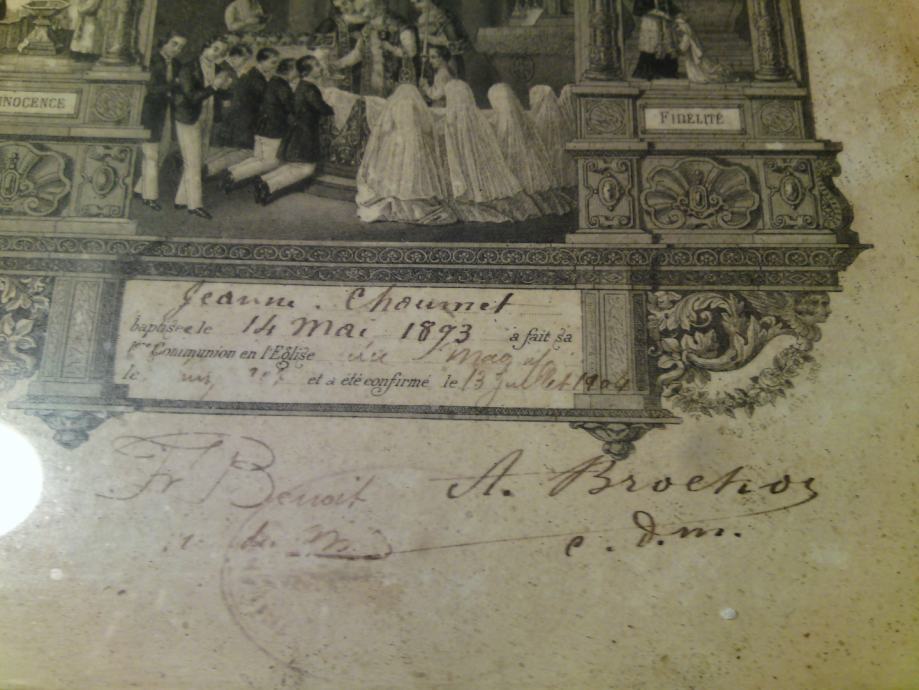 INNOCENCE
FIDELITÉ
Jeanne Chaumet
baptisée le 14 Mai 1893 a fait sa
1ère Communion en l'Église de
le et a été confirmé le 13 juillet 1904
Fr Benoit A. Brochoy
c. d. m.